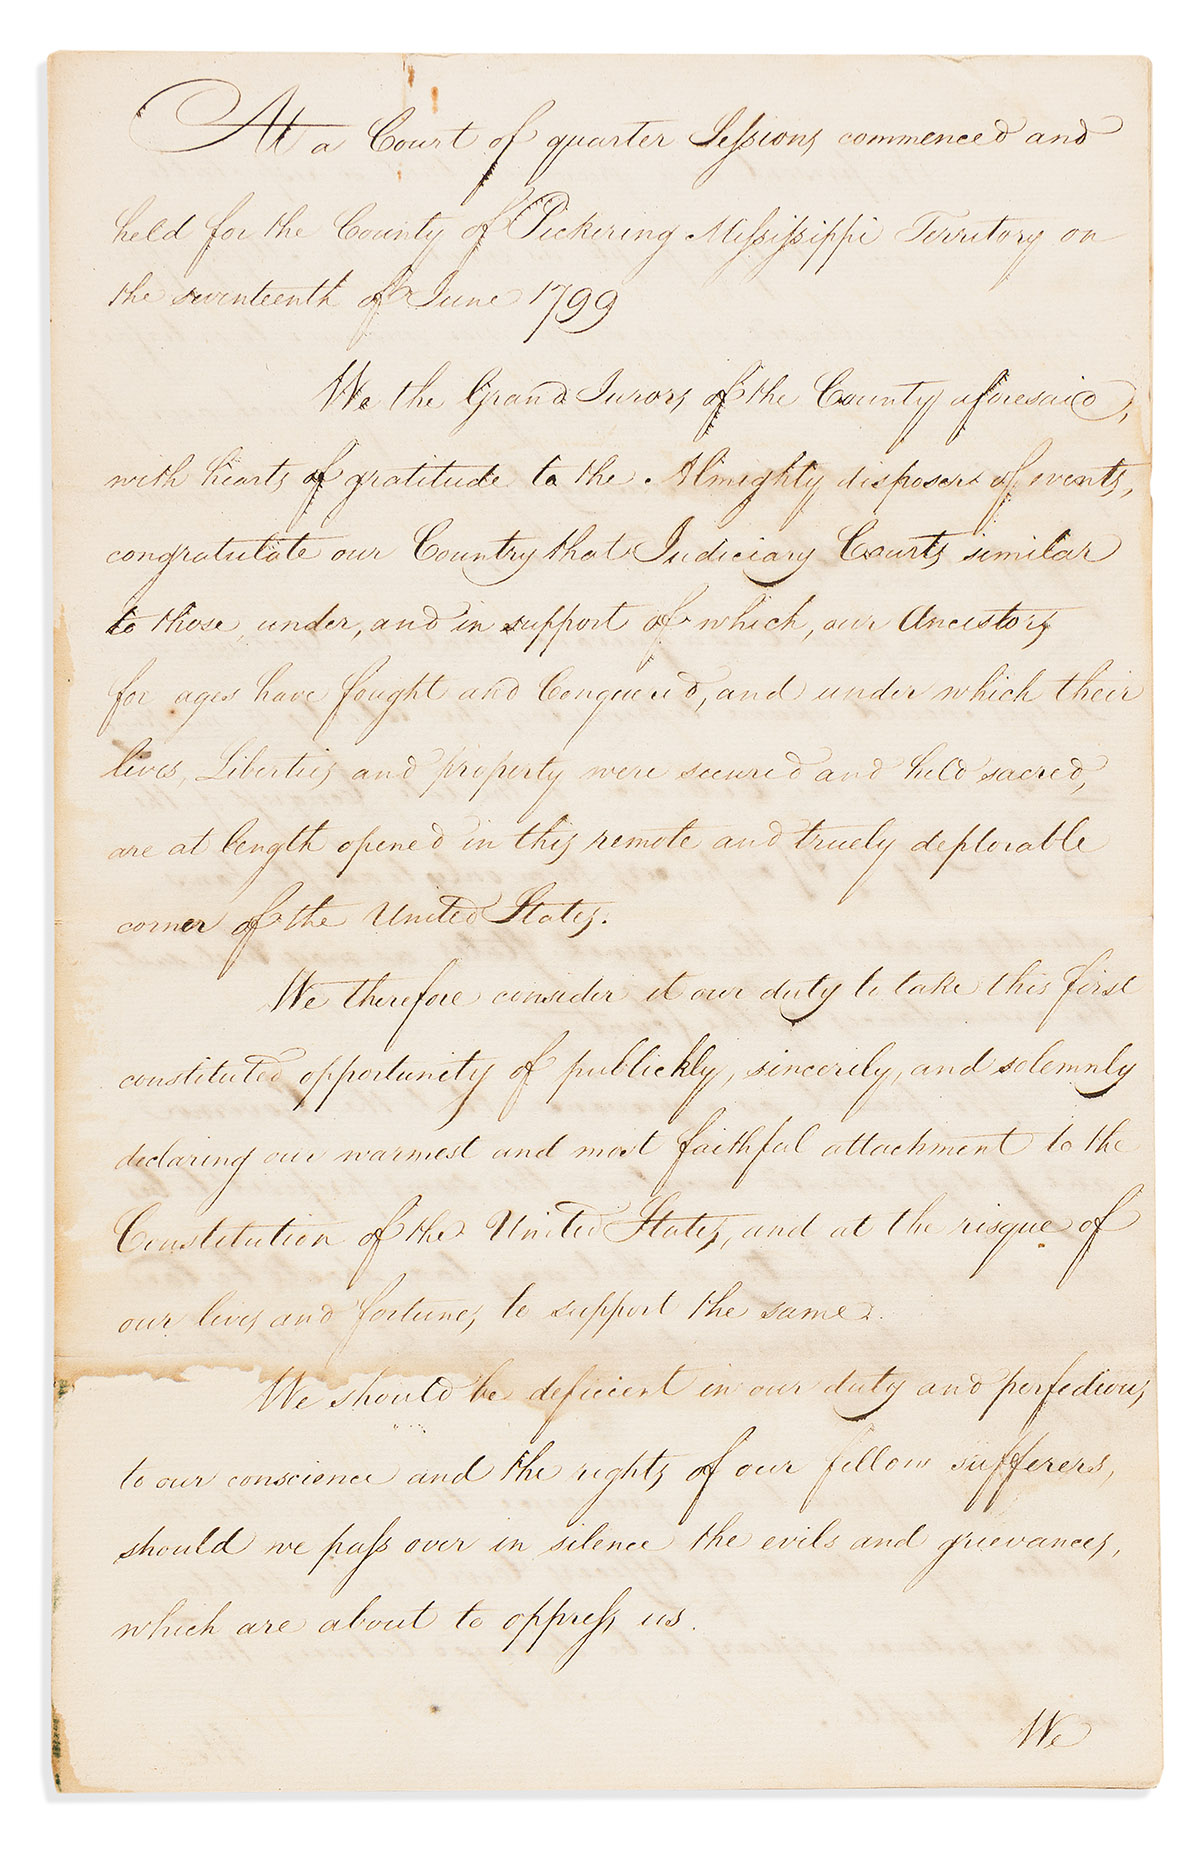 At a Court of quarter Sessions commenced and
held for the County of Pickering Mississippi Territory on
the seventeenth of June 1799
We the Grand Jurors of the County aforesaid,
with hearts of gratitude to the Almighty disposer of events,
congratulate our Country that Judiciary Courts similar
to those, under, and in support of which, our Ancestors
for ages have fought and Conquered, and under which their
lives, Liberties and property were secured and held sacred,
are at length opened in this remote and truely deplorable
corner of the United States.
We therefore consider it our duty to take this first
constituted opportunity of publickly, sincerily, and solemnly
declaring our warmest and most faithful attachment to the
Constitution of the United States, and at the risque of
our lives and fortunes to support the same.
We should be deficient in our duty and perfedious
to our conscience and the rights of our fellow sufferers,
should we pass over in silence the evils and grievances,
which are about to oppress us.
We